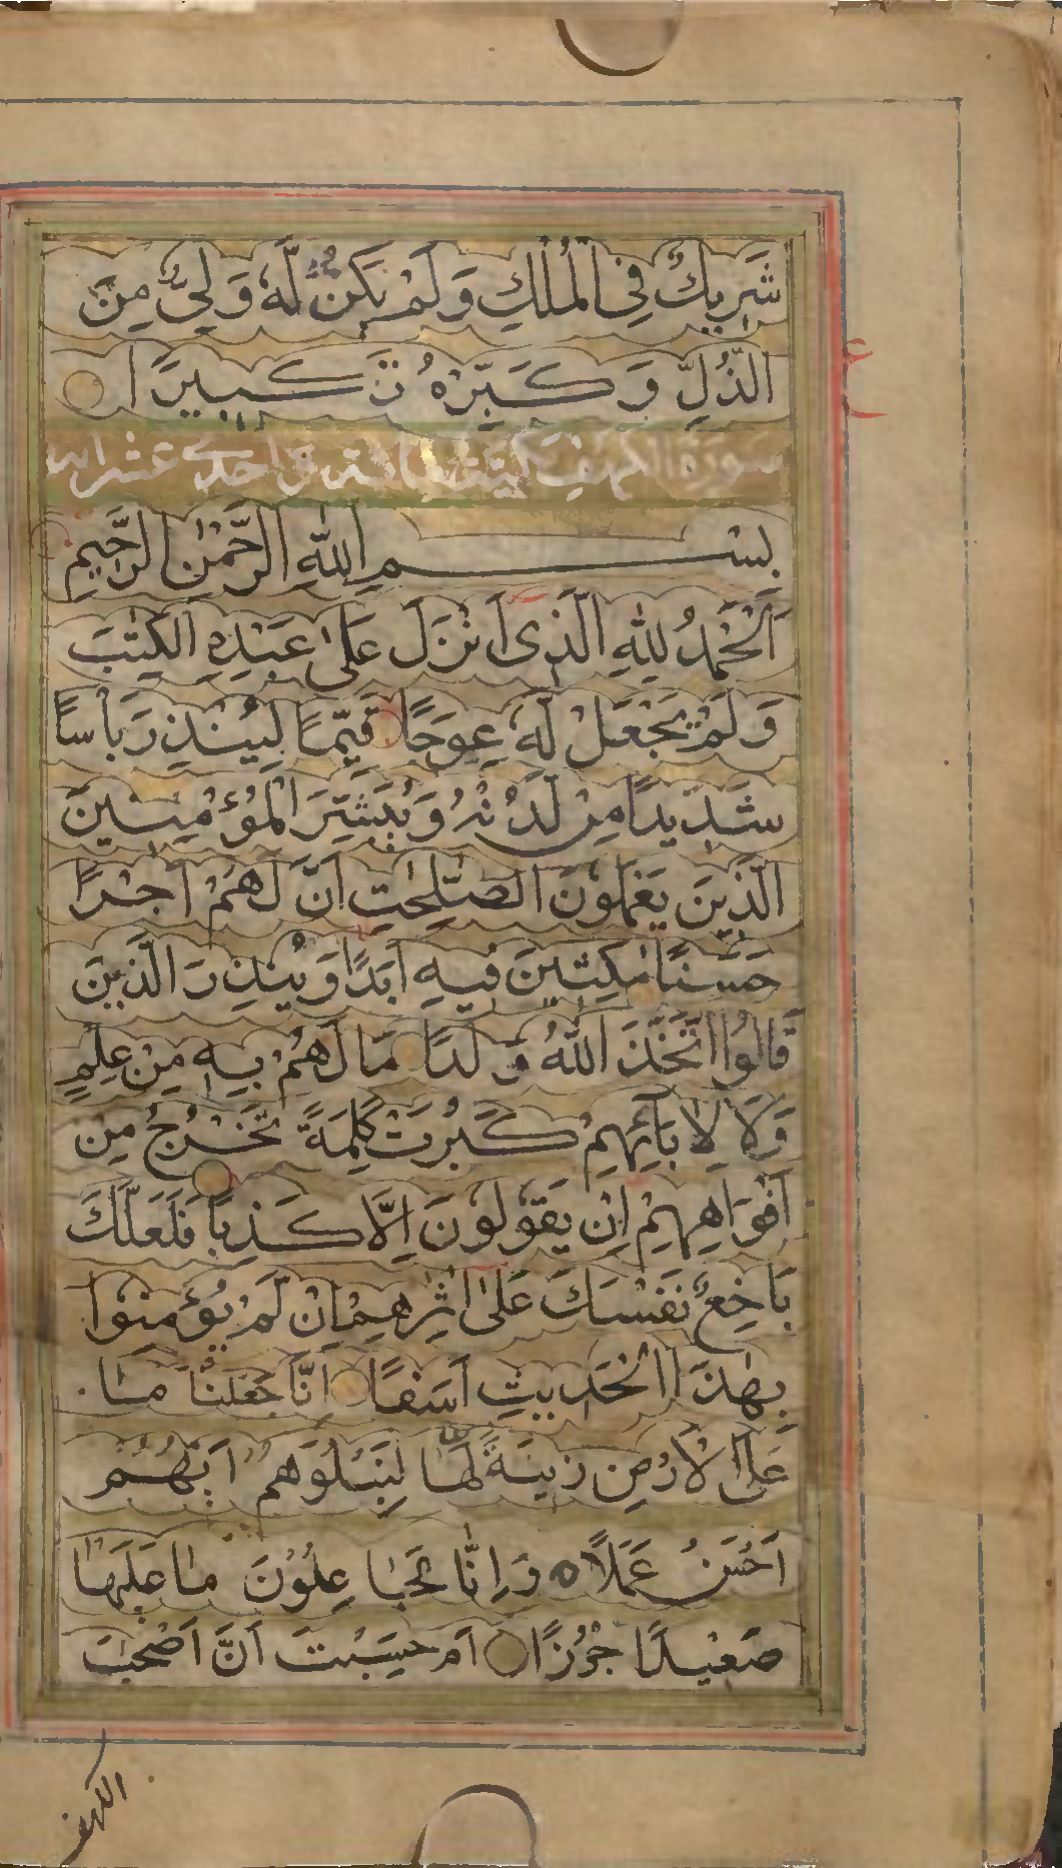 شَرِيكٌ فِى الْمُلْكِ وَلَمْ يَكُنْ لَّهُ وَلِىٌّ مِنَ
الذُّلِّ وَكَبِّرْهُ تَكْبِيرًا
سورة الكهف مكية عشر
بِسْمِ اللهِ الرَّحْمٰنِ الرَّحِيمِ
اَلْحَمْدُ لِلّٰهِ الَّذِى اَنْزَلَ عَلٰى عَبْدِهِ الْكِتٰبَ
وَلَمْ يَجْعَلْ لَهُ عِوَجًا قَيِّمًا لِيُنْذِرَ بَأْسًا
شَدِيدًا مِنْ لَدُنْهُ وَيُبَشِّرَ الْمُؤْمِنِينَ
الَّذِينَ يَعْمَلُونَ الصّٰلِحٰتِ اَنَّ لَهُمْ اَجْرًا
حَسَنًا مٰكِثِينَ فِيهِ اَبَدًا وَيُنْذِرَ الَّذِينَ
قَالُوا اتَّخَذَ اللهُ وَلَدًا مَّا لَهُمْ بِهِ مِنْ عِلْمٍ
وَلَا لِاٰبَآئِهِمْ كَبُرَتْ كَلِمَةً تَخْرُجُ مِنْ
اَفْوَاهِهِمْ اِنْ يَقُولُونَ اِلَّا كَذِبًا فَلَعَلَّكَ
بَاخِعٌ نَفْسَكَ عَلٰى اٰثٰرِهِمْ اِنْ لَمْ يُؤْمِنُوا
بِهٰذَا الْحَدِيثِ اَسَفًا اِنَّا جَعَلْنَا مَا
عَلَى الْاَرْضِ زِينَةً لَهَا لِنَبْلُوَهُمْ اَيُّهُمْ
اَحْسَنُ عَمَلًا ٥ وَاِنَّا لَجَاعِلُونَ مَا عَلَيْهَا
صَعِيدًا جُرُزًا اَمْ حَسِبْتَ اَنَّ اَصْحٰبَ
الكهف